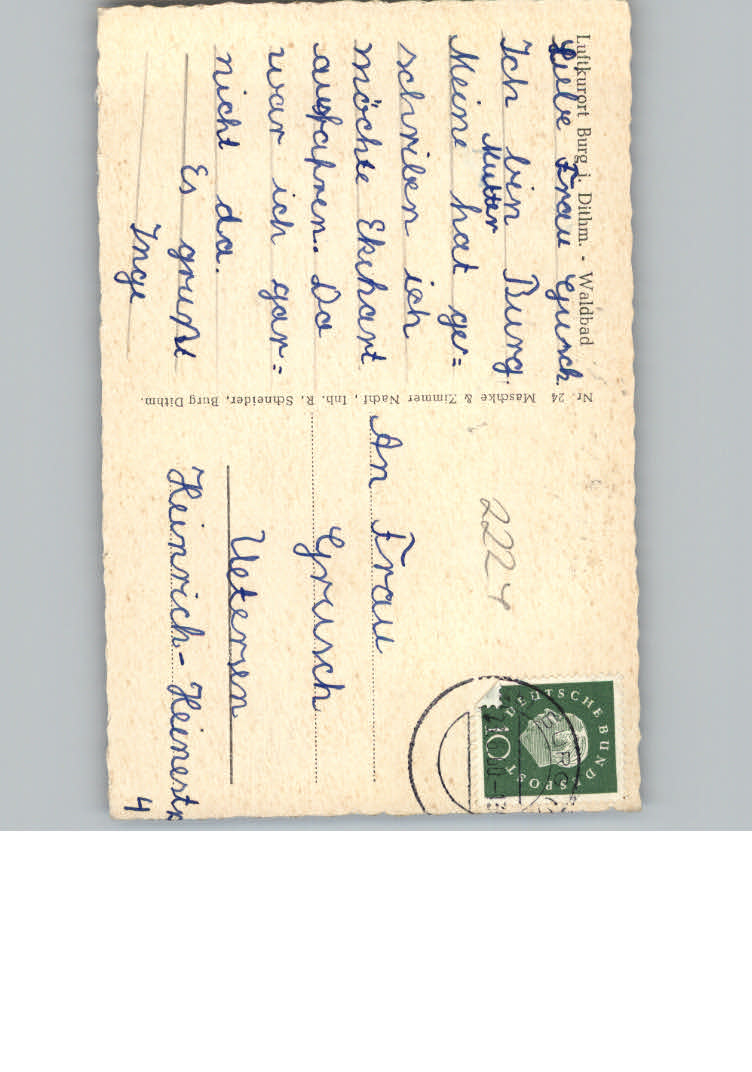 Luftkurort Burg i. Dithm. - Waldbad
Liebe Frau Grusch.
Ich bin Burg.
Mutter
Meine hat ger=
schrieben ich
möchte Ekehart
ausfahren. Da
war ich gar=
nicht da.
Es grußt
Inge
Nr. 24 Maschke & Zimmer Nachf., Inh. R. Schneider, Burg Dithm.
2224
An Frau
Grusch
Uetersen
Heinrich-Heinestr
4
DEUTSCHE BUNDESPOST
10
BURG